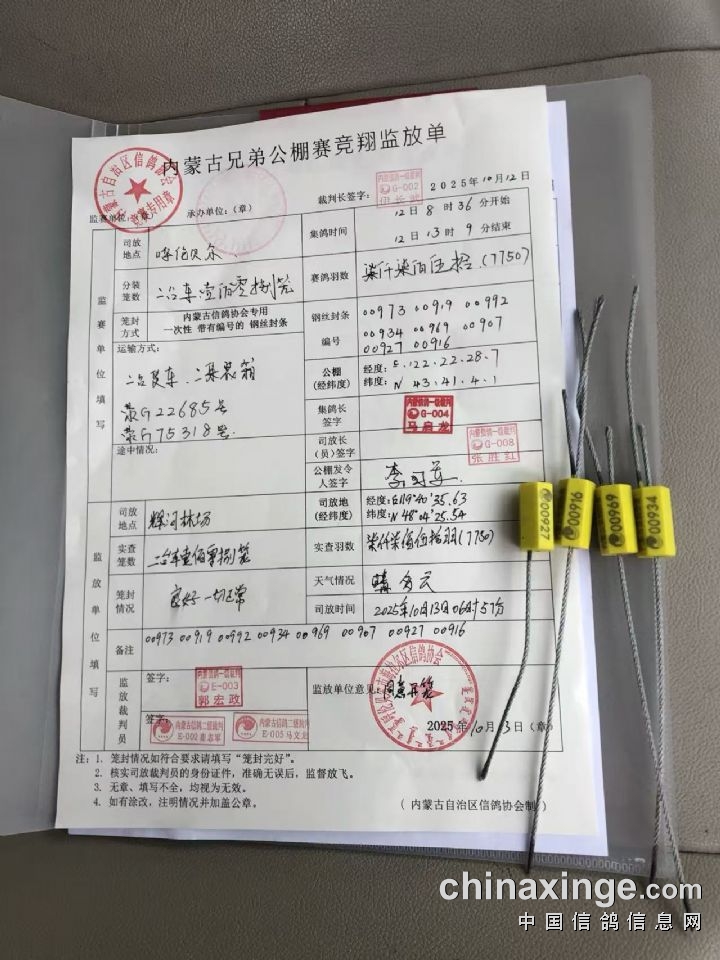 内蒙古兄弟公棚赛竞翔监放单
内蒙古自治区信鸽协会
竞赛专用章
监赛单位：（章）
承办单位：（章）
裁判长签字：
内蒙古信鸽一级裁判
G-002
2025年10月12日
监赛单位填写
司放地点
呼伦贝尔
集鸽时间
12日8时36分开始
12日13时9分结束
分装笼数
二台车壹佰零捌笼
赛鸽羽数
柒仟柒佰伍拾（7750）
笼封方式
内蒙古信鸽协会专用
一次性 带有编号的 钢丝封条
钢丝封条编号
00973 00919 00992
00934 00969 00907
00927 00916
运输方式：
蒙G22685号
蒙G75318号
公棚（经纬度）
经度：E.122.22.28.7
纬度：N 43.41.4.1
集鸽长签字
内蒙古信鸽一级裁判
G-004
马启龙
途中情况：
司放长（员）签字
内蒙古信鸽一级裁判
G-008
张胜红
公棚发令人签字
监放单位填写
司放地点
辉河林场
司放地（经纬度）
经度：E119°40'35.63
纬度：N 48°04'25.54
实查笼数
二台车壹佰零捌笼
实查羽数
柒仟柒佰伍拾羽（7750）
笼封情况
良好一切正常
天气情况
晴 多云
司放时间
2025年10月13日06时57分
备注
00973 00919 00992 00934 00969 00907 00927 00916
监放裁判员
签字：
内蒙古信鸽一级裁判
E-003
郭宏政
签字：
内蒙古信鸽二级裁判
E-002
内蒙古信鸽二级裁判
E-005 马文龙
监放单位意见：
同意开笼
2025年10月13日（章）
注：1. 笼封情况如符合要求请填写“笼封完好”。
2. 核实司放裁判员的身份证件，准确无误后，监督放飞。
3. 无章、填写不全，均视为无效。
4. 如有涂改，注明情况并加盖公章。
（内蒙古自治区信鸽协会制）
00927
00916
00969
00934
chinaxinge.com
中国信鸽信息网